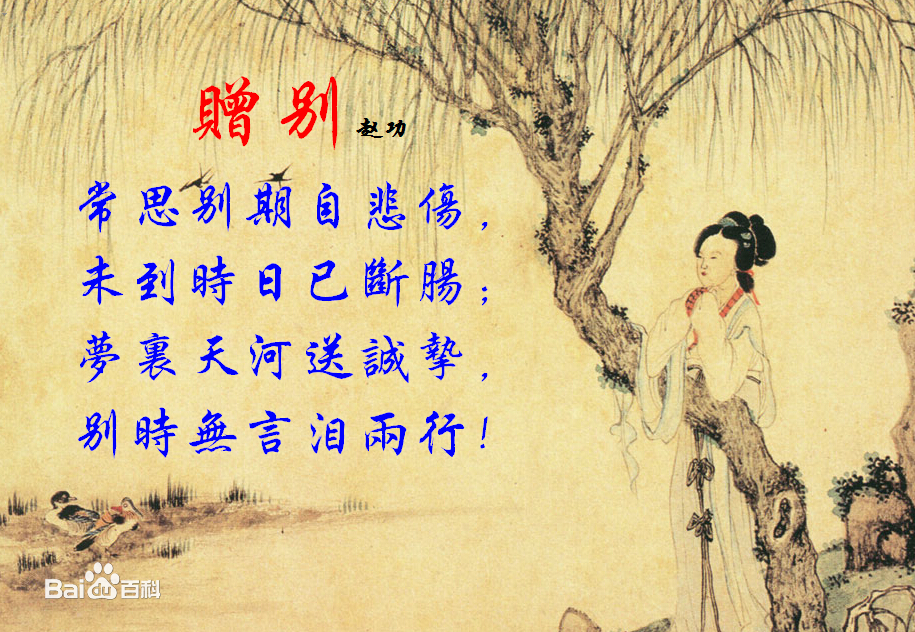 贈别 赵功
常思别期自悲傷，
未到時日已斷腸；
夢裏天河送誠摯，
别時無言泪兩行！
Bai百科